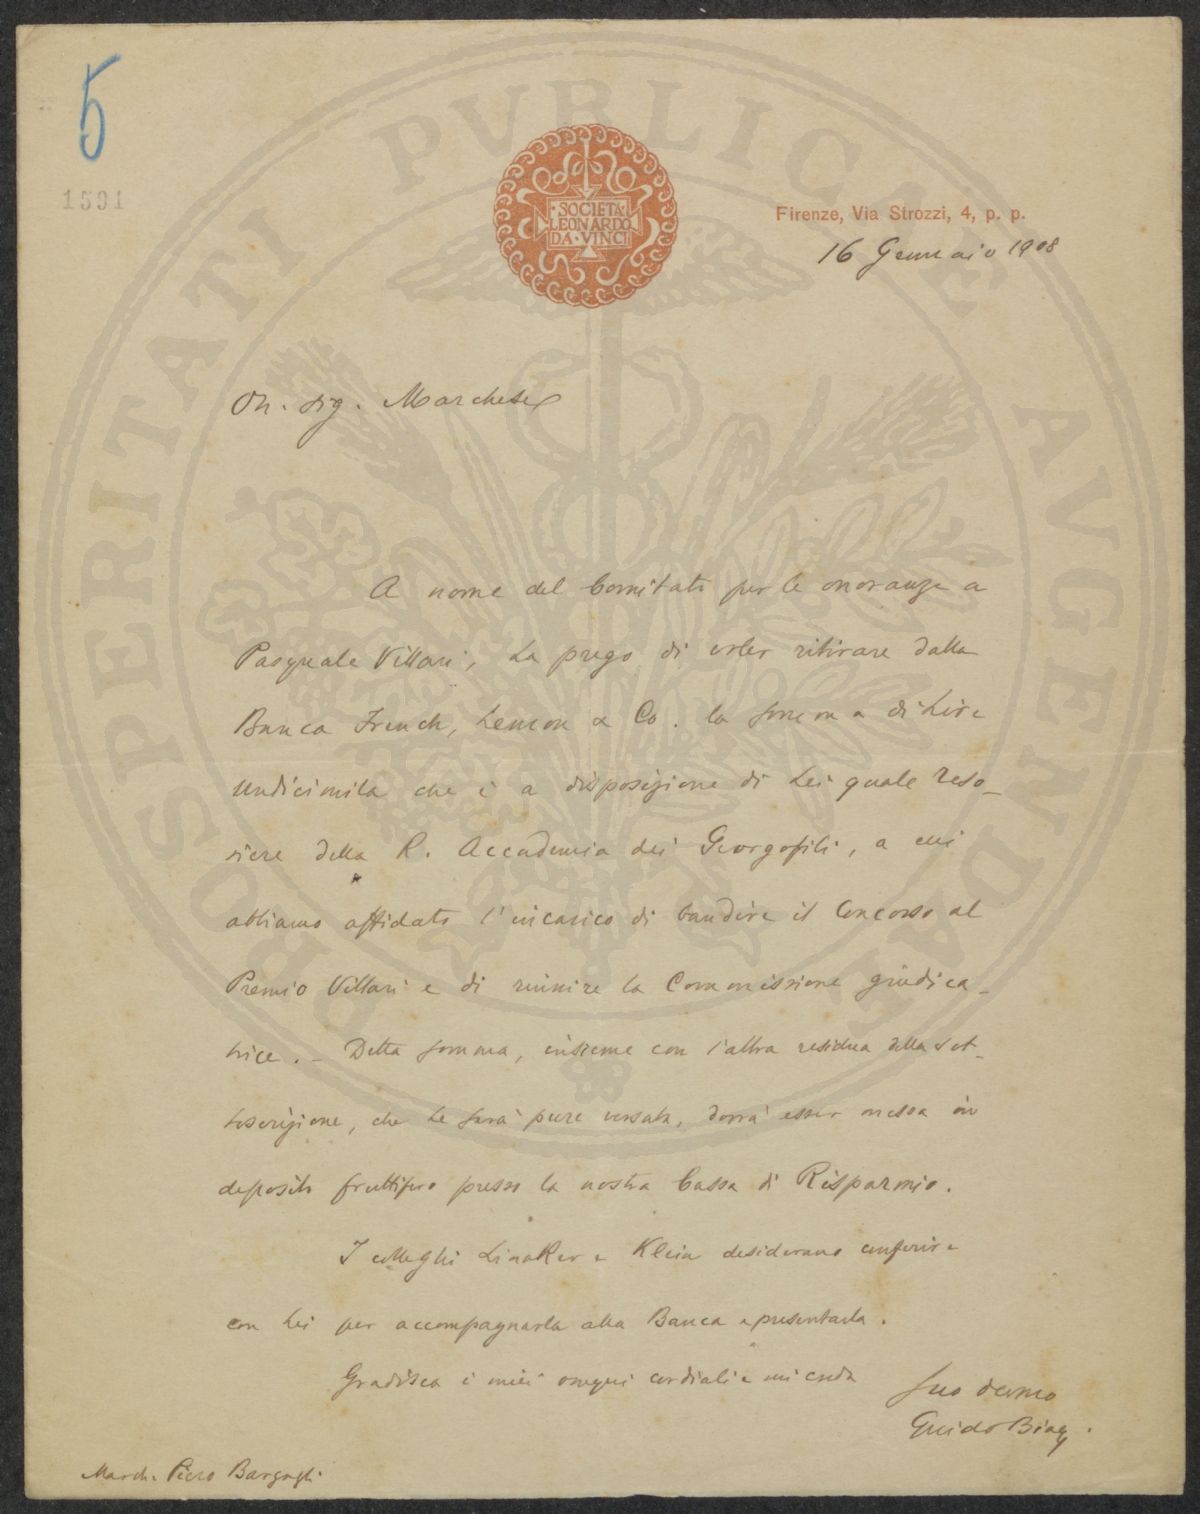 5
1591
PROSPERITATI PVBLICAE AVGENDAE
·SOCIETÀ·
LEONARDO
DA·VINCI
Firenze, Via Strozzi, 4, p. p.
16 Gennaio 1908
On. Sig. Marchese
A nome del Comitato per le onoranze a
Pasquale Villari, La prego di voler ritirare dalla
Banca French, Lemon & Co. la somma di Lire
Undicimila che è a disposizione di Lei quale Teso-
riere della R. Accademia dei Georgofili, a cui
abbiamo affidato l'incarico di bandire il Concorso al
Premio Villari e di riunire la Commissione giudica-
trice. - Detta somma, insieme con l'altra residua della sot-
toscrizione, che Le sarà pure versata, dovrà esser messa in
deposito fruttifero presso la nostra Cassa di Risparmio.
I colleghi Linaker e Klein desiderano conferire
con Lei per accompagnarla alla Banca e presentarla.
Gradisca i miei ossequi cordiali e mi creda
Suo devmo
Guido Biagi.
March. Piero Bargagli